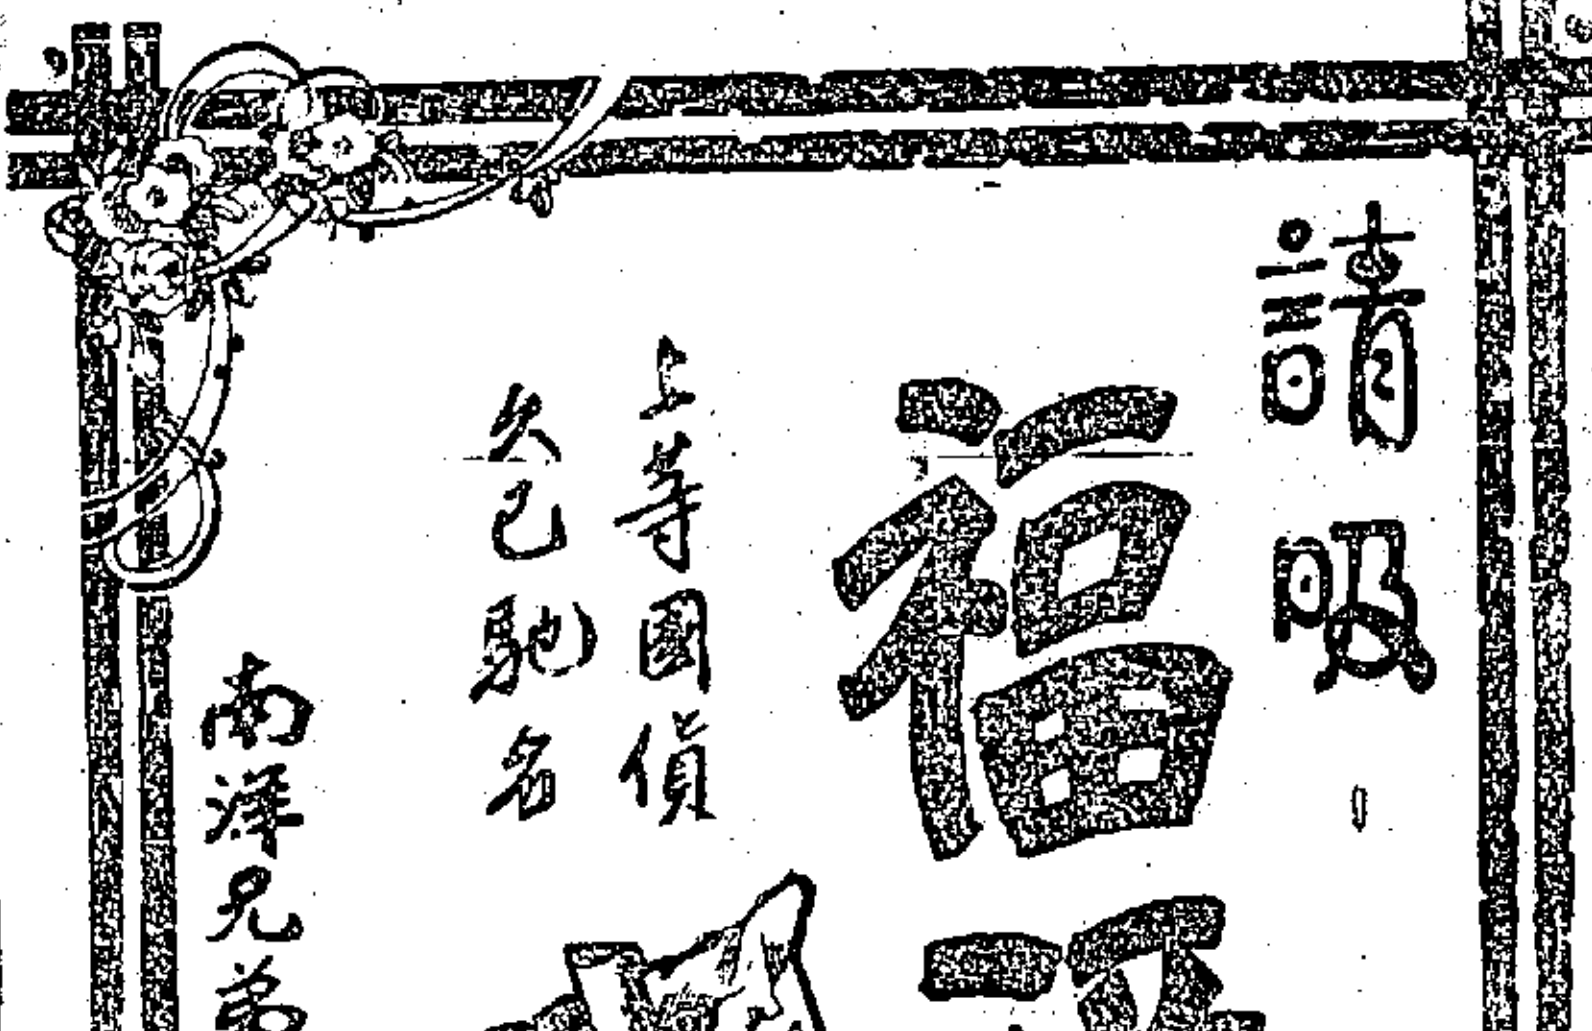 請吸
福
上等國貨
久已馳名
南洋兄弟